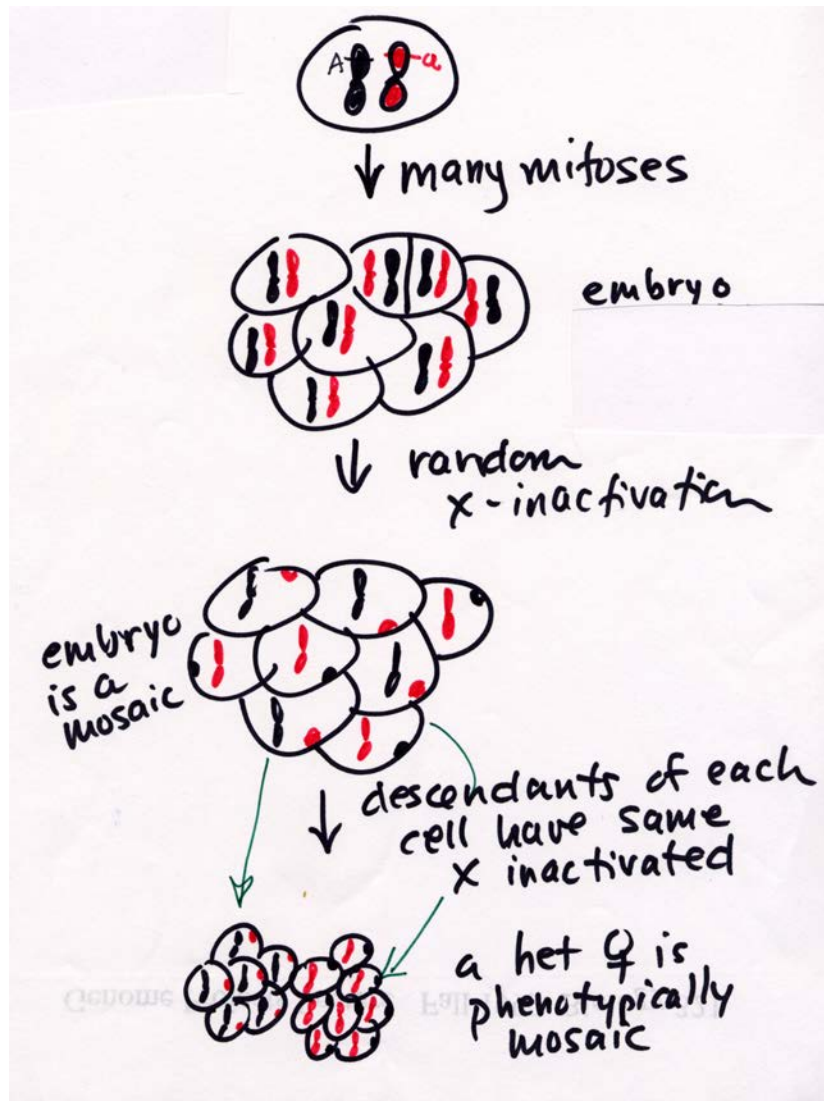 A a
many mitoses
embryo
random
X-inactivation
embryo
is a
mosaic
descendants of each
cell have same
X inactivated
a het ♀ is
phenotypically
mosaic
Genome
Fall